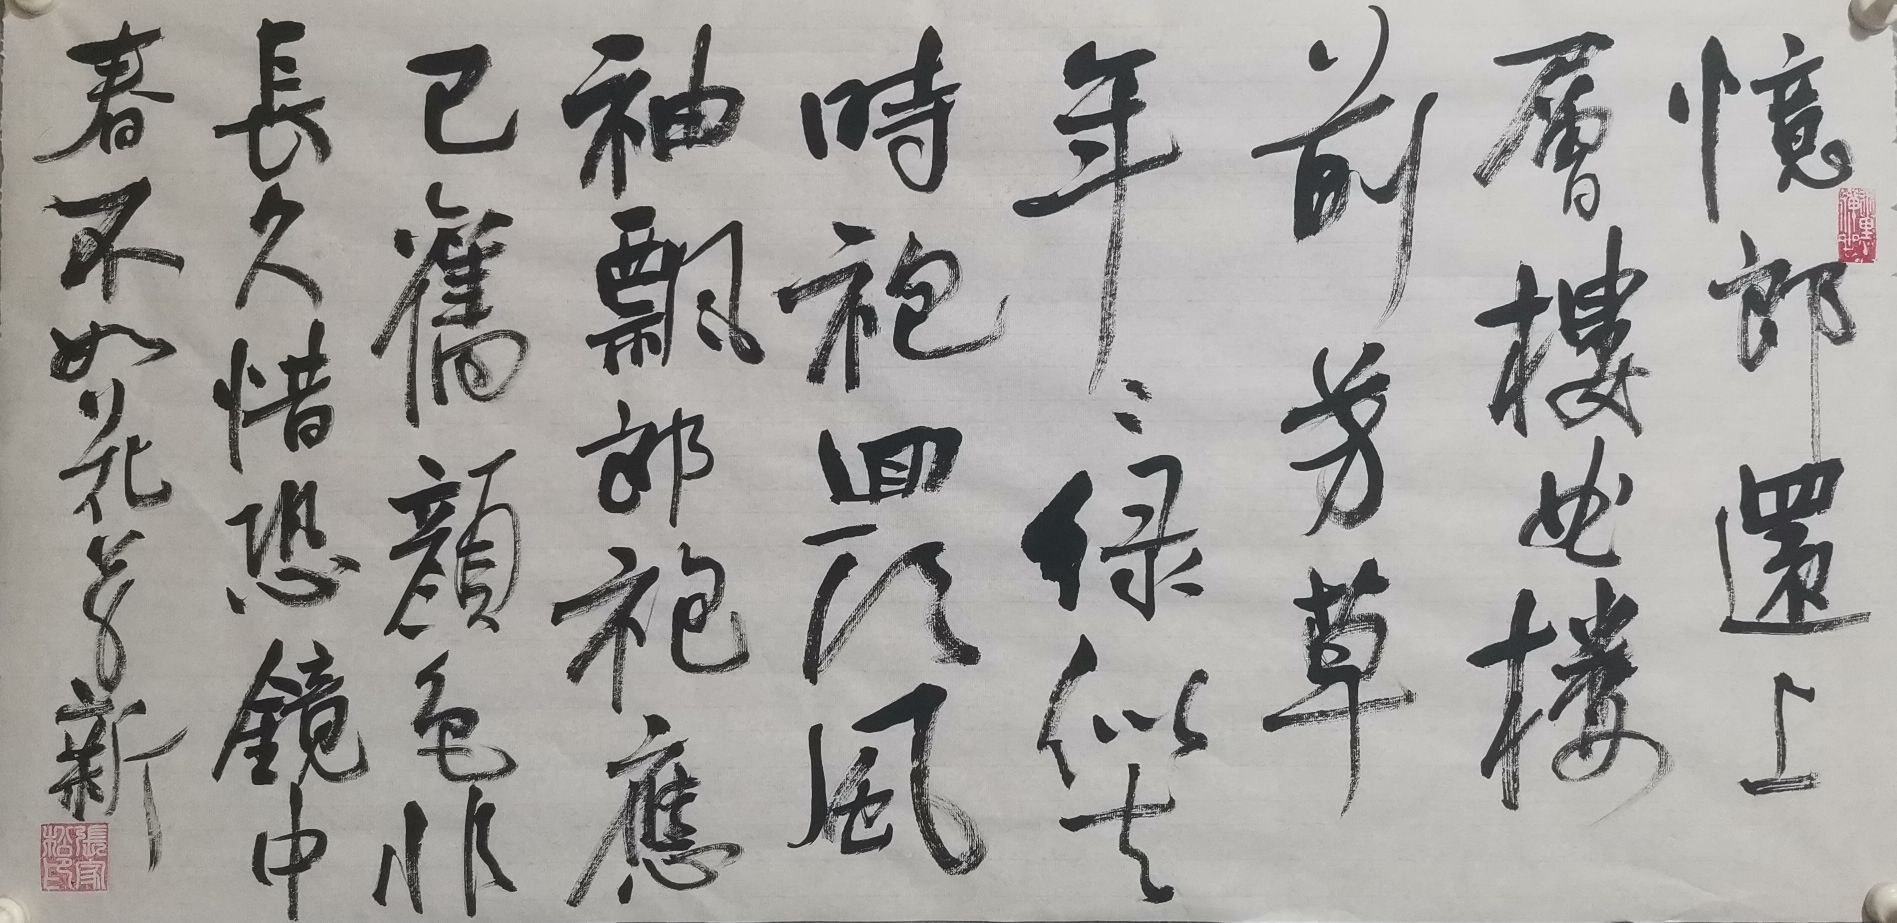 憶郎還上
層樓曲樓
前芳草
年〻绿似去
時袍回頭風
袖飄郎袍應
已舊顏色非
長久惜恐鏡中
春不如花草新
張家松印